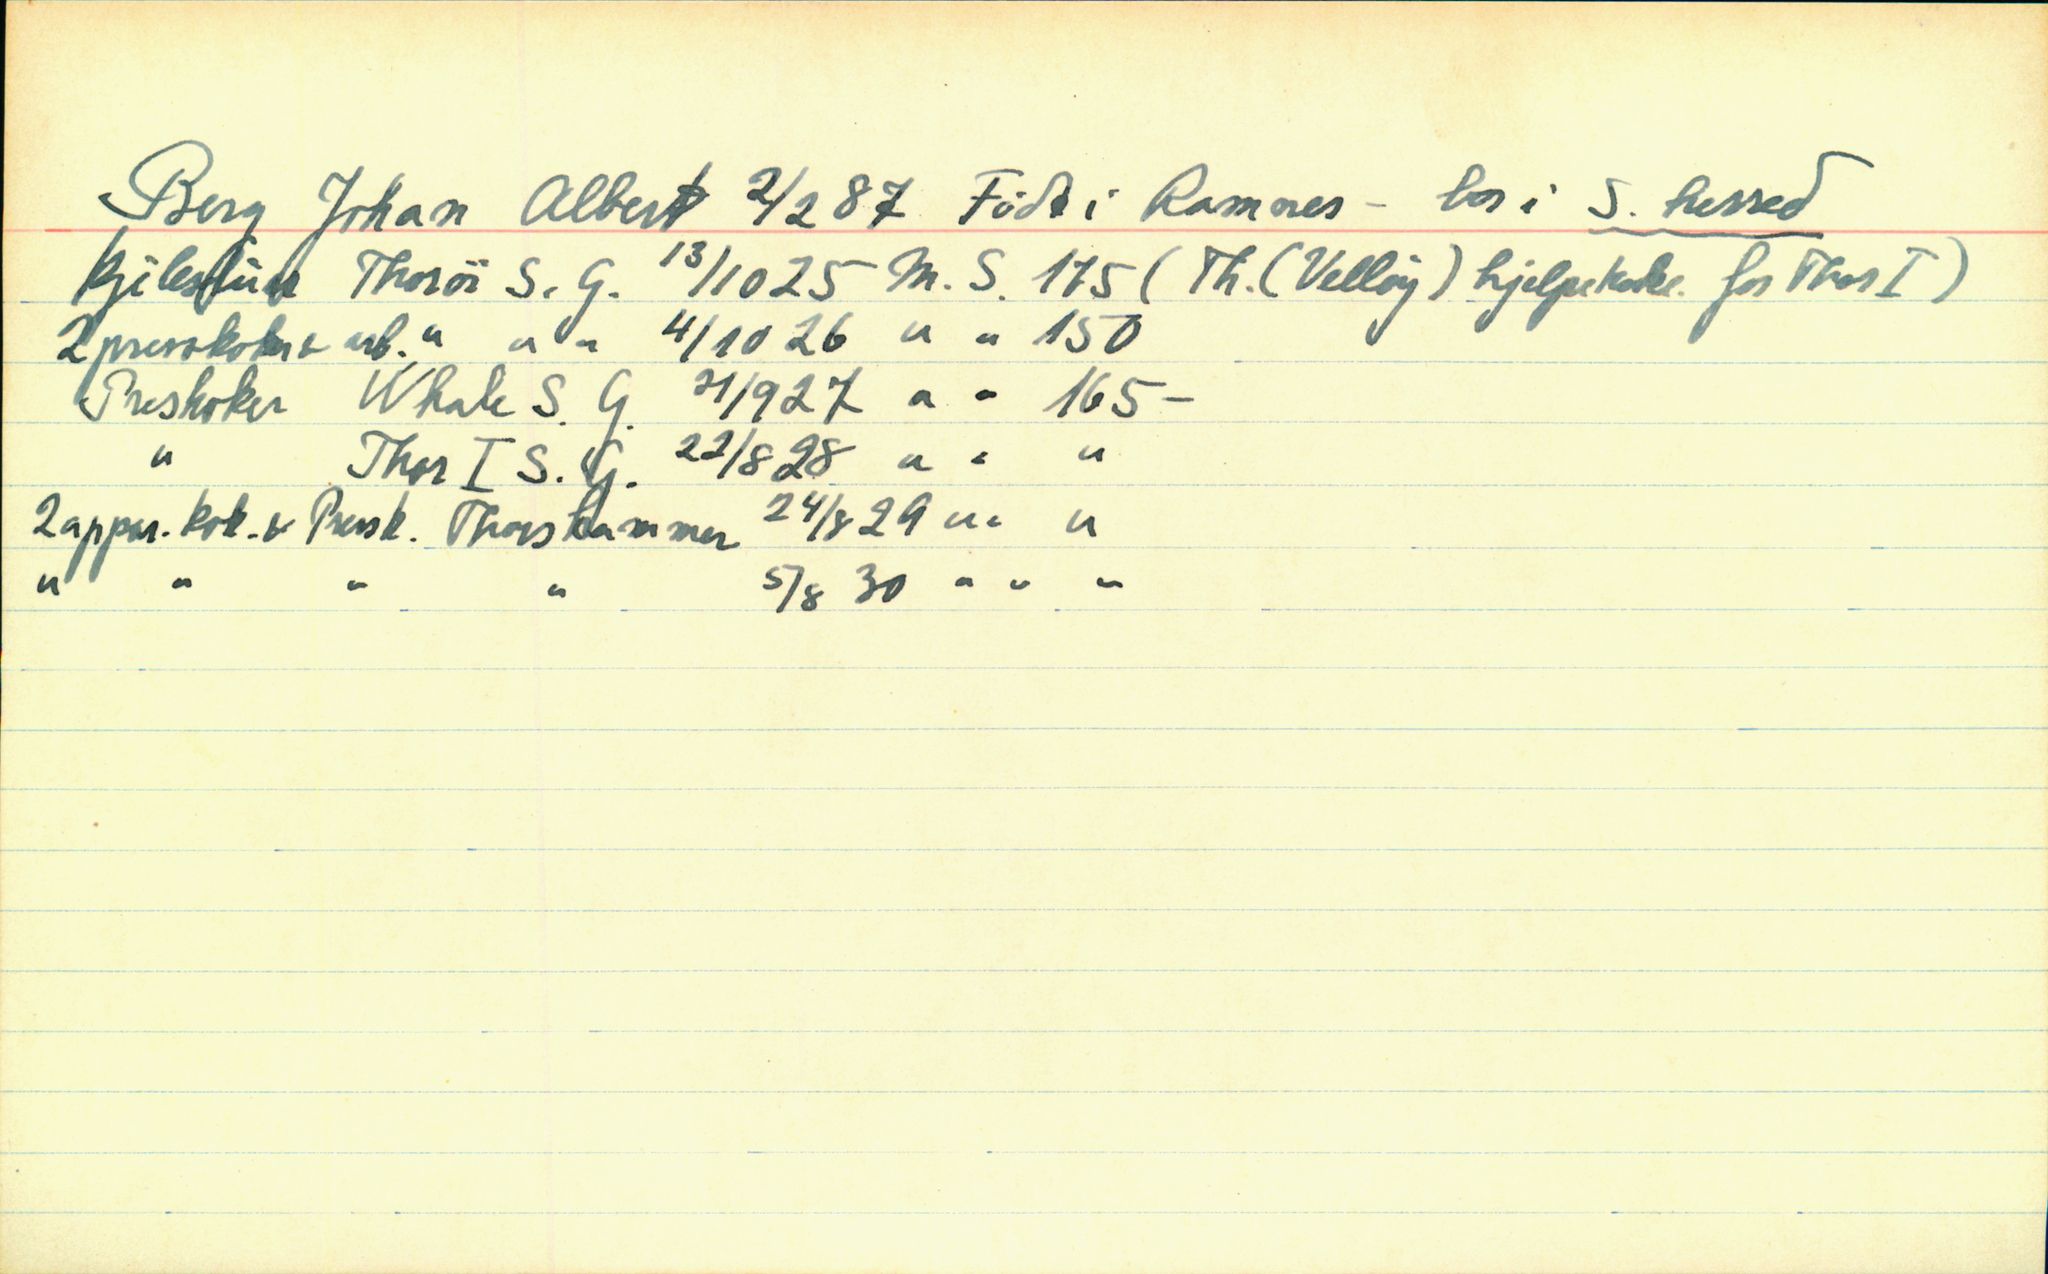 Berg Johan Albert 2/2 87 Födt i Ramnes - bor i S. herred
Thoröi S. G. 13/10 25 M. S. 175 (Th. (Vellöy) hjelpekoke. for Thor I)
2 presskoker & arb. " " " 4/10 26 " " 150
Preskoker Whale S. G. 21/9 27 " " 165 -
" Thor I S. G. 22/8 28 " " "
2 appar. kok. & Presk. Thorshammer 24/8 29 " " "
" " " " 5/8 30 " " "